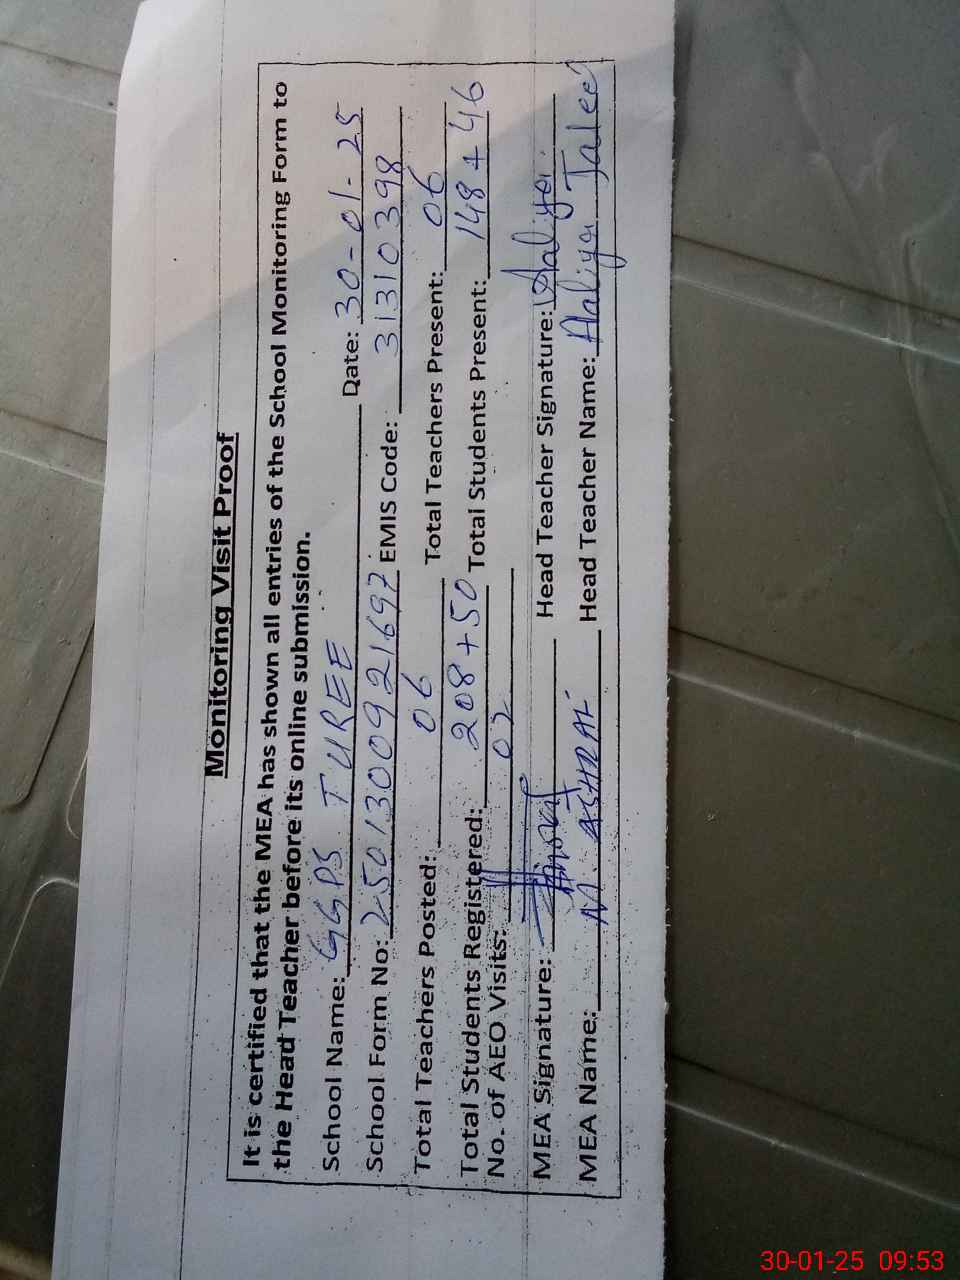 Monitoring Visit Proof
It is certified that the MEA has shown all entries of the School Monitoring Form to
the Head Teacher before its online submission.
School Name: GGPS TUREE Date: 30-01-25
School Form No: 2501300921697 EMIS Code: 31310398
Total Teachers Posted: 06 Total Teachers Present: 06
Total Students Registered: 208+50 Total Students Present: 148+46
No. of AEO Visits: 02
MEA Signature: Head Teacher Signature: Aaliya
MEA Name: M. ASHRAF Head Teacher Name: Aaliya
30-01-25 09:53